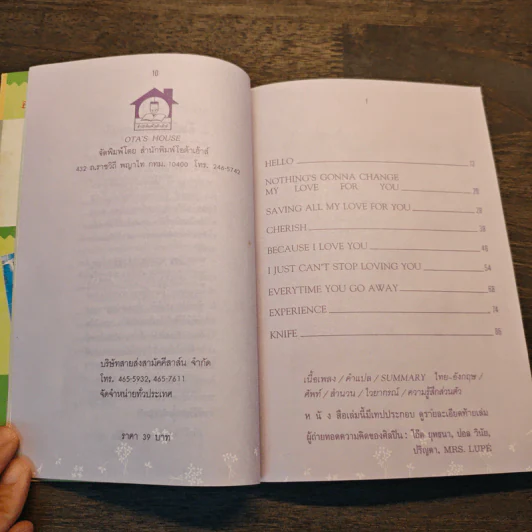 10
OTA'S HOUSE
จัดพิมพ์โดย สำนักพิมพ์โอต้าเฮ้าส์
432 ถ.ราชวิถี พญาไท กทม. 10400 โทร. 246-5742
บริษัทสายส่งสามัคคีสาส์น จำกัด
โทร. 465-5932, 465-7611
จัดจำหน่ายทั่วประเทศ
ราคา 39 บาท
HELLO
NOTHING'S GONNA CHANGE
MY LOVE FOR YOU
SAVING ALL MY LOVE FOR YOU
CHERISH
BECAUSE I LOVE YOU
I JUST CAN'T STOP LOVING YOU 54
EVERYTIME YOU GO AWAY
EXPERIENCE 74
KNIFE
เนื้อเพลง / คำแปล / SUMMARY ไทย-อังกฤษ /
ศัพท์ / สำนวน / ไวยากรณ์ / ความรู้สึกส่วนตัว
ห นั ง สือเล่มนี้มีเทปประกอบ ดูรายละเอียดท้ายเล่ม
ผู้ถ่ายทอดความคิดของศิลปิน : โอ๊ต ยุพธนา, ปอล วินัย,
ปริญดา, MRS. LUPE